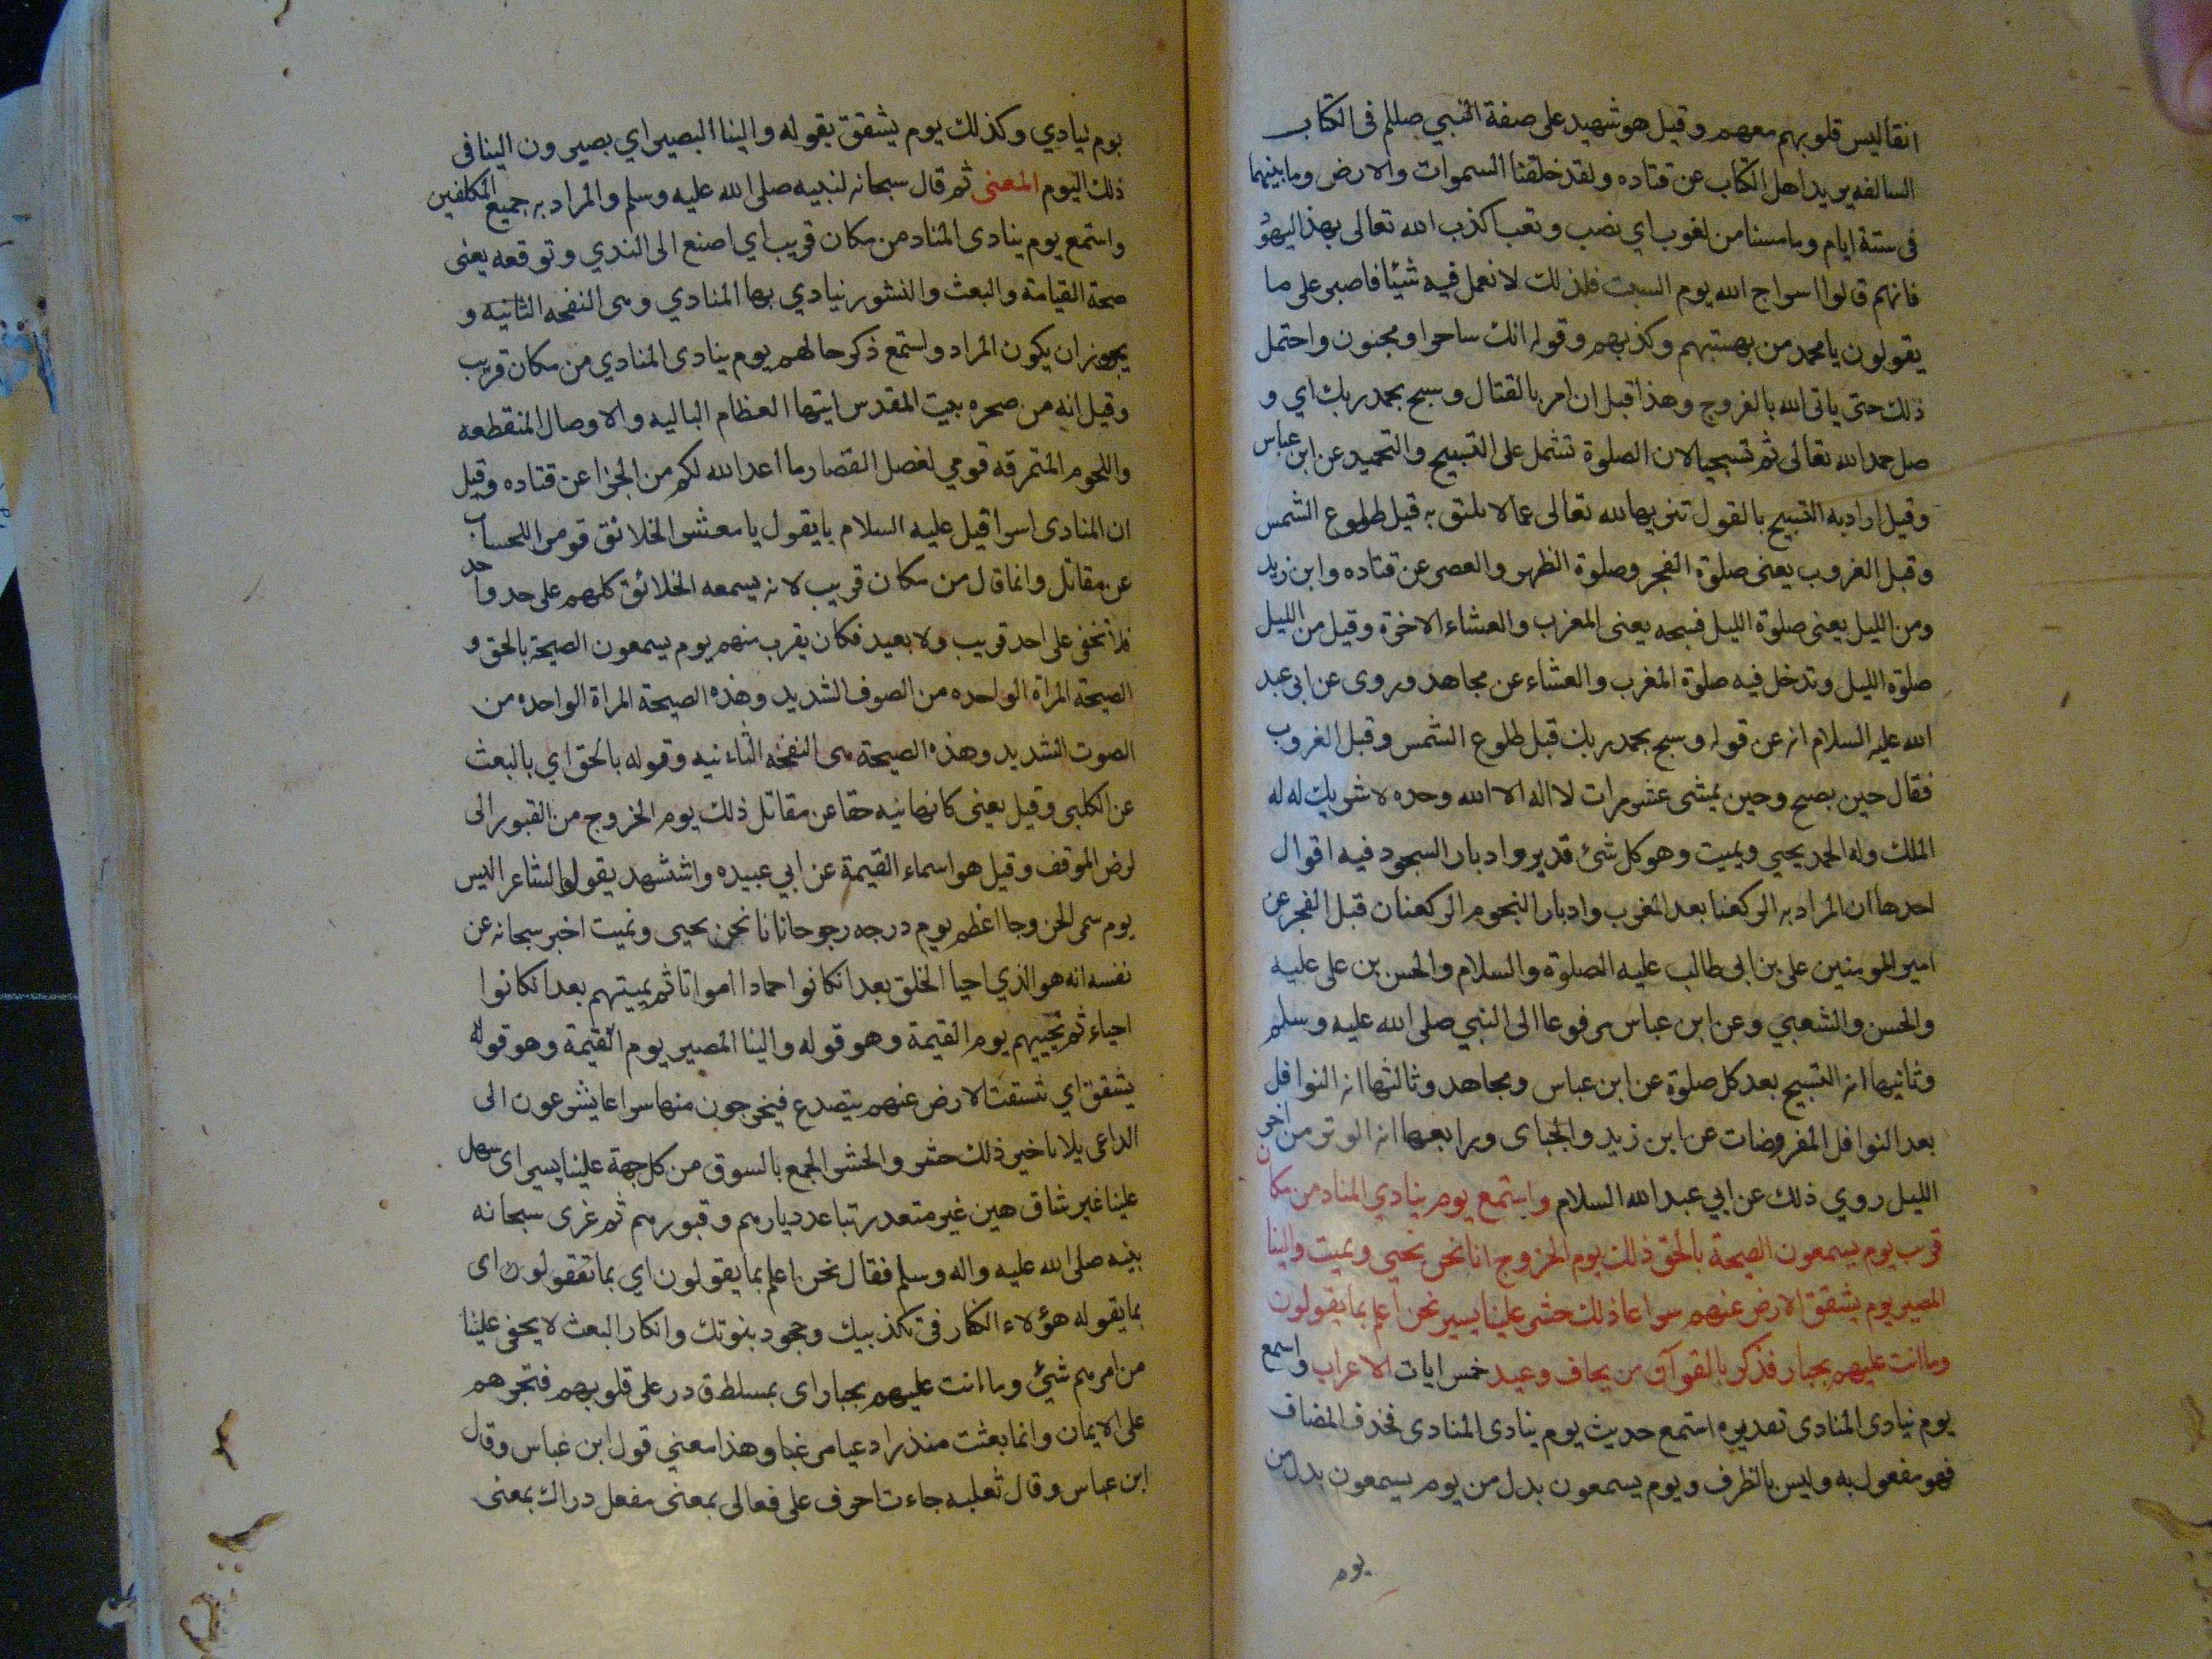 انقاليس قلوبهم معهم وقيل هو شهيد على صفة النبي صللم فى الكتاب
السالفه يريد اهل الكتاب عن قتاده ولقد خلقنا السموات والارض وما بينهما
فى ستة ايام وما مسنا من لغوب اي نصب وتعب اكذب الله تعالى بهذا اليهؤ
فانهم قالوا اسراح الله يوم السبت فلذلك لا نعمل فيه شيئا فاصبر على ما
يقولون يا محمد من بهستهم وكذبهم وقوله انك ساحر او مجنون واحتمل
ذلك حتى ياتى الله بالفروج وهذا قبل ان امر بالقتال وسبح بحمد ربك اي و
صل حمد الله تعالى ثم تسبيحا لان الصلوة تشمل على التسبيح والتحميد عن ابن عباس
وقيل اراد به التسبيح بالقول تنزيها لله تعالى عما لا يليق به قبل طلوع الشمس
وقبل الغروب يعنى صلوة الفجر وصلوة الظهر والعصر عن قتاده وابن زيد
ومن الليل يعنى صلوة الليل فسبحه يعنى المغرب والعشاء الاخرة وقيل من الليل
صلوة الليل وتدخل فيه صلوة المغرب والعشاء عن مجاهد وروى عن ابى عبد
الله عليه السلام انه عن قوله وسبح بحمد ربك قبل طلوع الشمس وقبل الغروب
فقال حين يصبح وحين يمشى عشر مرات لا اله الا الله وحده لا شريك له له
الملك وله الحمد يحيي ويميت وهو كل شئ قدير وادبار السجود فيه اقوال
احدها ان المراد به الركعنا بعد المغرب وادبار النجوم الركعتان قبل الفجر عن
امير المومنين على بن ابى طالب عليه الصلوة والسلام والحسن بن على عليه
والحسن والشعبي وعن ابن عباس مرفوعا الى النبي صلى الله عليه وسلم
وثانيها انه التسبيح بعد كل صلوة عن ابن عباس ومجاهد وثالثها انه النوافل
بعد النوافل المفروضات عن ابن زيد والجباى ورابعها انه الوتر من اخر
الليل روي ذلك عن ابي عبد الله السلام واستمع يوم ينادي المناد من مكان
قرب يوم يسمعون الصيحة بالحق ذلك يوم الخروج انا نحن نحيي ونميت والينا
المصير يوم يشقق الارض عنهم سراعا ذلك حشر علينا يسير نحن اعلم بما يقولون
وما انت عليهم بجبار فذكر بالقرآن من يخاف وعيد خمس ايات الاعراب واسمع
يوم نيادى المنادى تعديره استمع حديث يوم ينادى المنادى فخذف المضاف
فهو مفعول به وليس بالظرف ويوم يسمعون بدل من يوم يسمعون بدل من
يوم
يوم نيادي وكذلك يوم يشقق بقوله والينا البصير اي بصيرون الينا فى
ذلك اليوم المعنى ثم قال سبحانه لنبيه صلى الله عليه وسلم والمراد به جميع المكلفين
واستمع يوم ينادى المناد من مكان قريب اي اصنع الى الندي وتوقعه يعنى
صحة القيامة والبعث والنشور نيادي بها المنادي وهى النفحه الثانيه و
يجوز ان يكون المراد واستمع ذكر حالهم يوم ينادى المنادي من مكان قريب
وقيل انه من صحره بيت المقدس ايتها العظام الباليه والاوصال المنقطعه
واللحوم المتمرقه قومي لفصل القضا وما اعد الله لكم من الجزا عن قتاده وقيل
ان المنادى اسرافيل عليه السلام يا يقول يا معشر الخلائق قوموا للحساب
عن مقاتل وانما قال من مكان قريب لانه يسمعه الخلائق كلهم على حد واحد
فلا تخفى على احد قريب ولا بعيد فكان يقرب منهم يوم يسمعون الصيحة بالحق و
الصيحة المراة الواحده من الصوف الشديد وهذه الصيحة المراة الواحده من
الصوت الشديد وهذه الصيحة هى النفخه الثاءنيه وقوله بالحق اي بالبعث
عن الكلبى وقيل يعنى كانها نيه حقا عن مقاتل ذلك يوم الخروج من القبور الى
لرض الموقف وقيل هو اسماء القيمة عن ابي عبيده واشتشهد يقول الشاعر اليس
يوم سمى الخن وجا اعظم يوم درجه رجوحانا انا نحن يحيى ونميت اخبر سبحانه عن
نفسه انه هو الذي احيا الخلق بعد انكانوا حمادا امواتا ثم يميتهم بعد انكانوا
احياء ثم تحييهم يوم القيمة وهو قوله والينا المصير يوم القيمة وهو قوله
يشقق اي تسقت الارض عنهم يتصدع فيخرجون منها سراعا يشرعون الى
الداعى بلا تاخير ذلك حشر والحشر الجمع بالسوق من كل جهة علينا يسير اى سهل
علينا غير شاق هين غير متعدر تباعد ديارهم وقبورهم ثم غرى سبحانه
بنيه صلى الله عليه واله وسلم فقال نحن اعلم بما يقولون اي بما تقولون اى
بما يقوله هؤلاء الكفار فى تكذبيك وجحود بنوتك وانكار البعث لا يخفى علينا
من امرهم شئ وما انت عليهم بجبار اى بمسلط قدر على قلوبهم فتجرهم
على الايمان وانما بعثت منذرا دعيا مرغبا وهذا معني قول ابن عباس وقال
ابن عباس وقال ثعلبه جاءت احرف على فعالى بمعنى مفعل دراك بمعنى